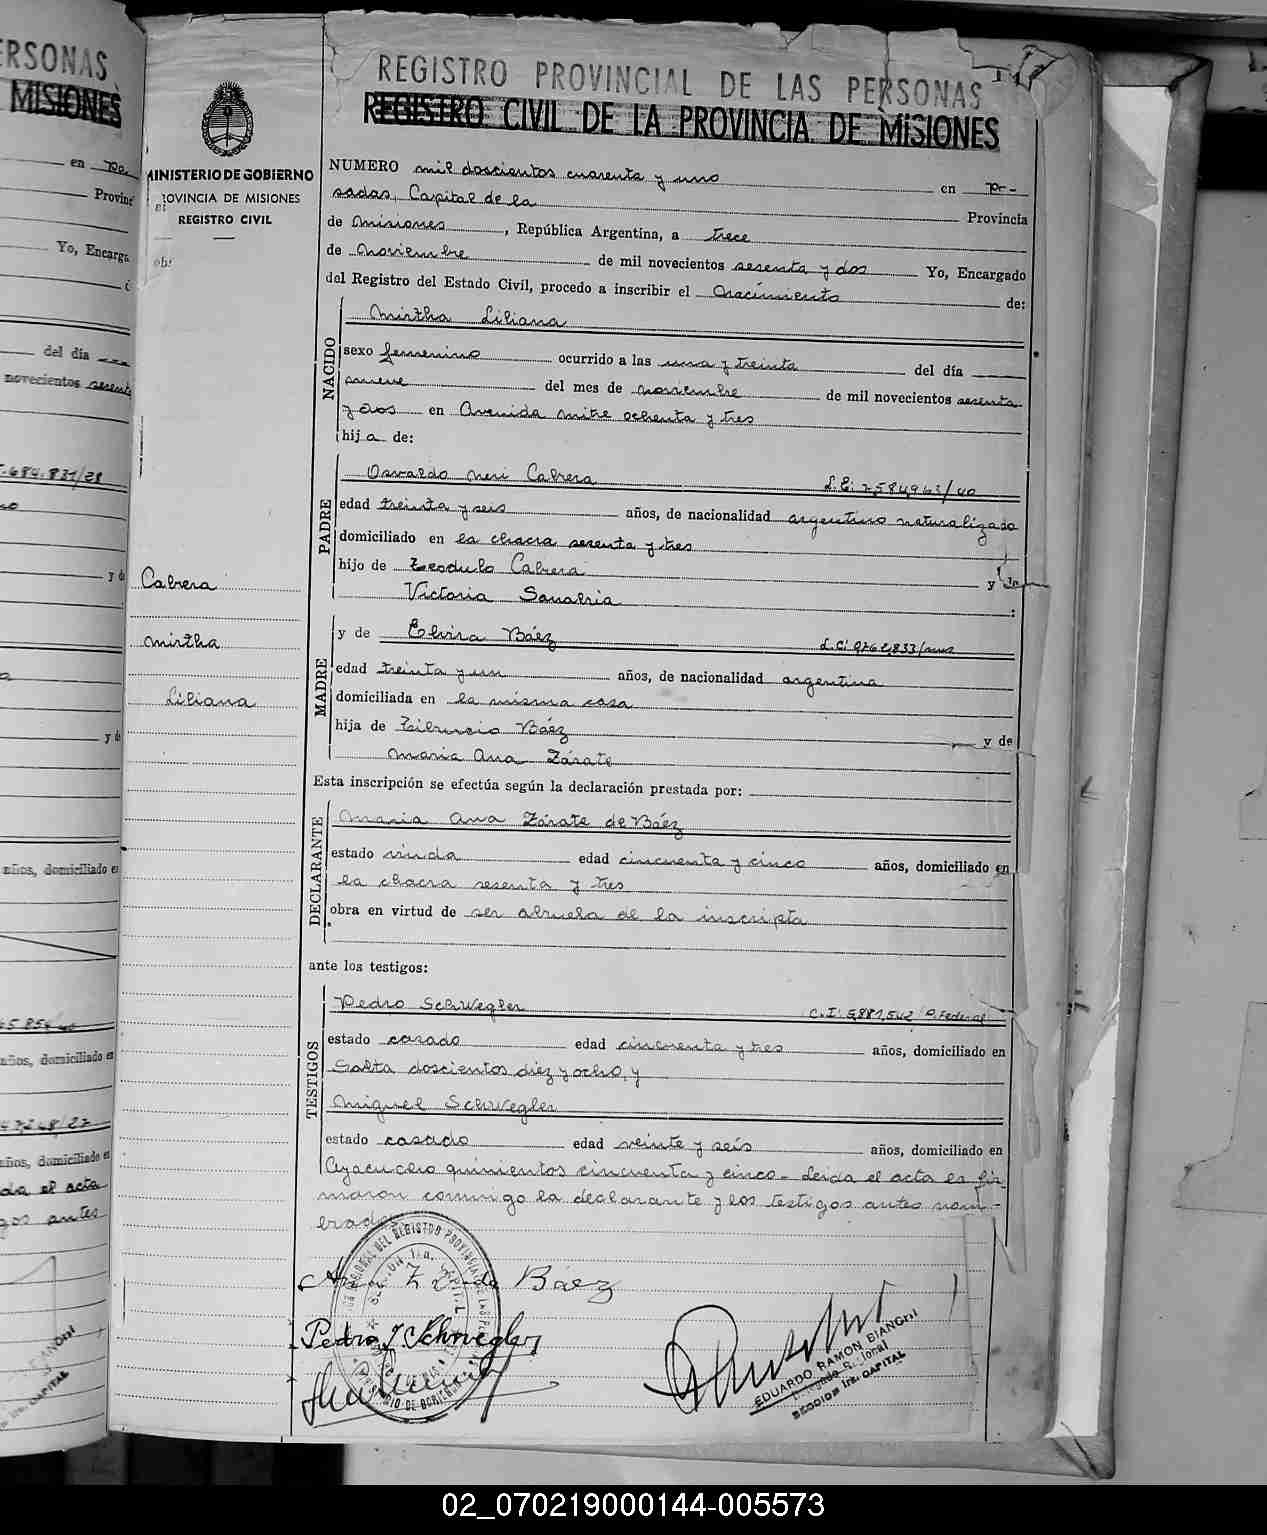 REGISTRO PROVINCIAL DE LAS PERSONAS
REGISTRO CIVIL DE LA PROVINCIA DE MISIONES
MINISTERIO DE GOBIERNO
PROVINCIA DE MISIONES
REGISTRO CIVIL
NUMERO mil doscientos cuarenta y uno en Po-
sadas, Capital de la Provincia
de Misiones, República Argentina, a trece
de Noviembre de mil novecientos sesenta y dos Yo, Encargado
del Registro del Estado Civil, procedo a inscribir el Nacimiento de:
NACIDO
Mirtha Liliana
sexo femenino ocurrido a las una y treinta del día
nueve del mes de noviembre de mil novecientos sesenta
y dos en Avenida Mitre ochenta y tres
hija de:
PADRE
Osvaldo Neri Cabrera L.E. 7.584,963/40
edad treinta y seis años, de nacionalidad argentino naturalizado
domiciliado en la chacra sesenta y tres
hijo de Teodulo Cabrera y de
Victoria Sanabria :
MADRE
y de Elvira Báez
edad treinta y un años, de nacionalidad argentina
domiciliada en la misma casa
hija de Tiburcio Báez y de
Maria Ana Zárate
Cabrera
Mirtha
Liliana
Esta inscripción se efectúa según la declaración prestada por:
DECLARANTE
Maria Ana Zárate de Báez
estado viuda edad cincuenta y cinco años, domiciliado en
la chacra sesenta y tres
obra en virtud de ser abuela de la inscripta
ante los testigos:
TESTIGOS
Pedro Schwegler C.I. 5,881,542 P. Federal
estado casado edad cincuenta y tres años, domiciliado en
Salta doscientos diez y ocho, y
Miguel Schwegler
estado casado edad veinte y seis años, domiciliado en
Ayacucho quinientos cincuenta y cinco- Leida el acta la fir-
maron conmigo la declarante y los testigos antes nom-
brados
Báez
Pedro J. Schwegler
EDUARDO RAMON BIANCHI
Delegado Regional
SECCION 1ra. CAPITAL
02_070219000144-005573